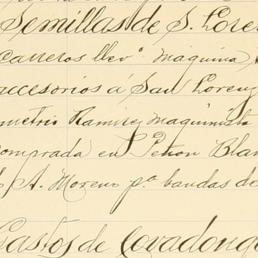 Semillas de S. Lore
carreros llevº maquina
accesorios á San Lorenz
metrio Ramirez maquinista
comprada en Peñon Blan
A. Moreno pª bandas de
Gastos de Covadong